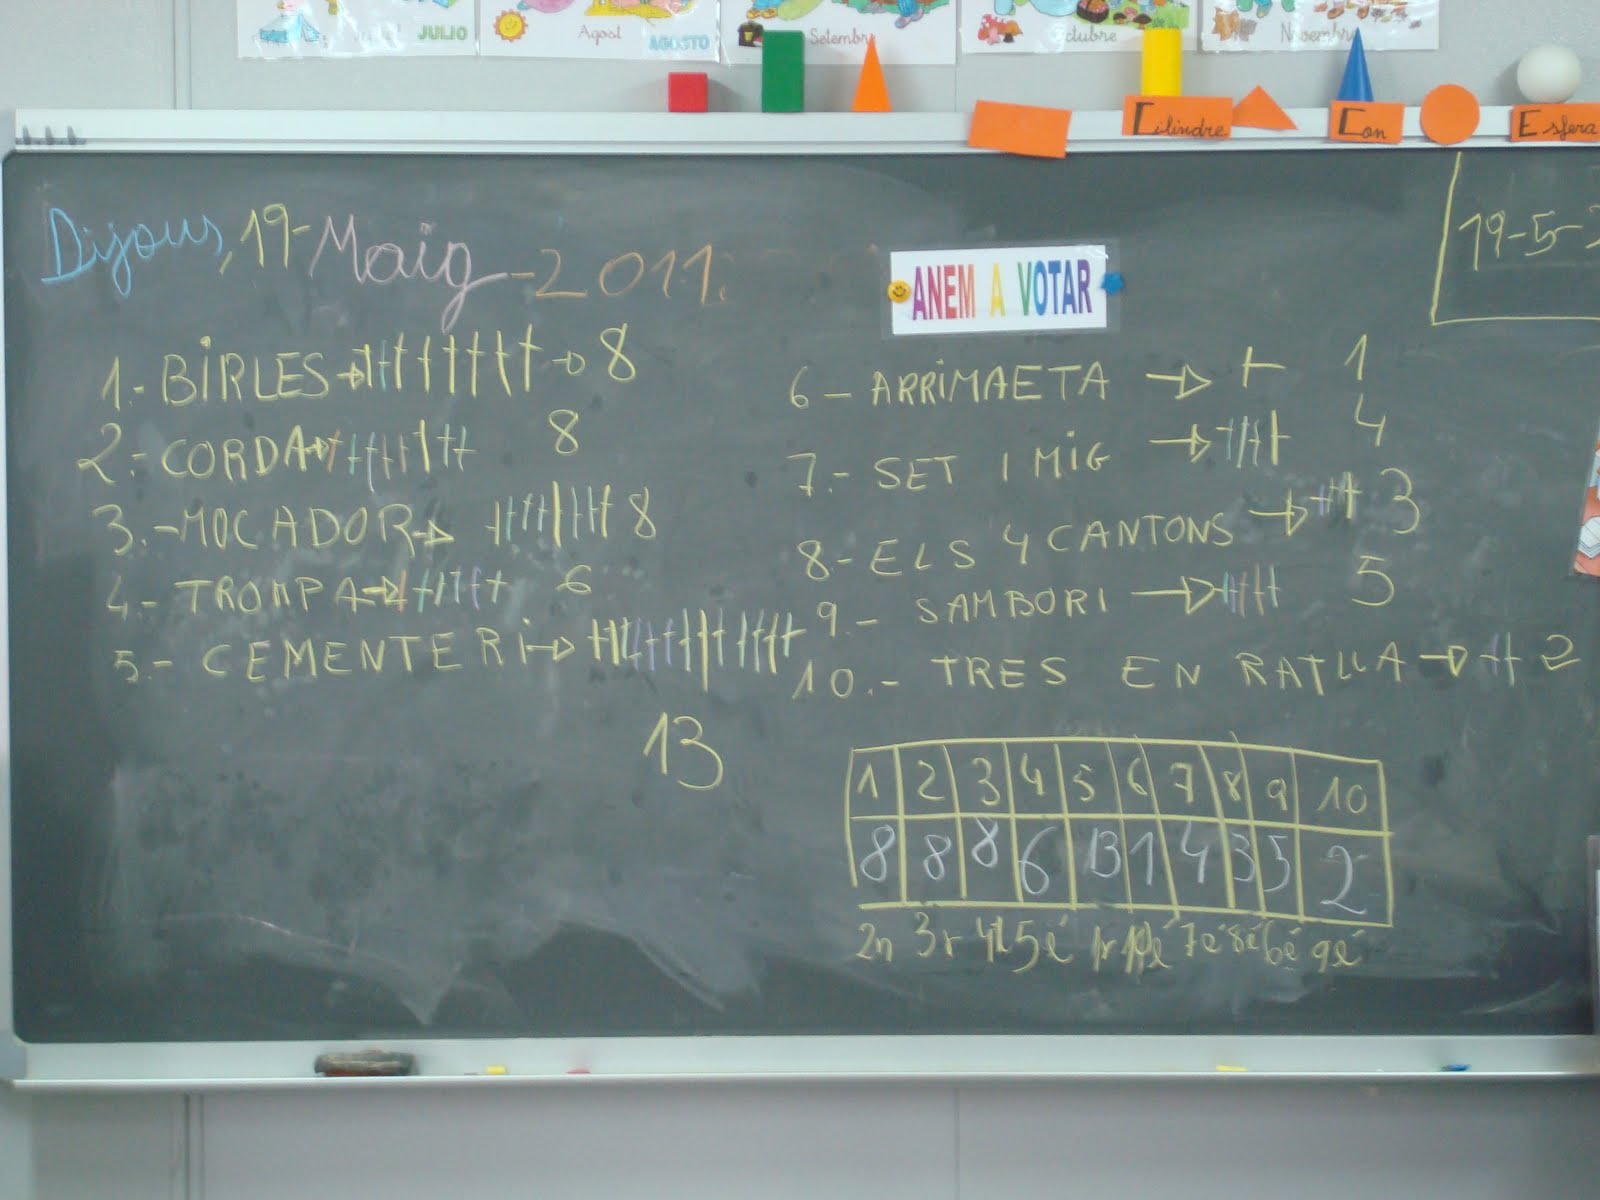 JULIO
Agost AGOSTO
Setembre
Octubre
Novembre
Cilindre
Con
Esfera
Dijous, 19-Maig-2011.
ANEM A VOTAR
19-5-
1.- BIRLES → 8
2.- CORDA → 8
3.- MOCADOR → 8
4.- TROMPA → 6
5.- CEMENTERI →
13
6 - ARRIMAETA → 1
7.- SET I MIG → 4
8- ELS 4 CANTONS → 3
9.- SAMBORI → 5
10.- TRES EN RATLLA → 2
1 2 3 4 5 6 7 8 9 10
8 8 8 6 13 1 4 3 5 2
2n 3r 4t 5é 1r 10é 7é 8é 6é 9é